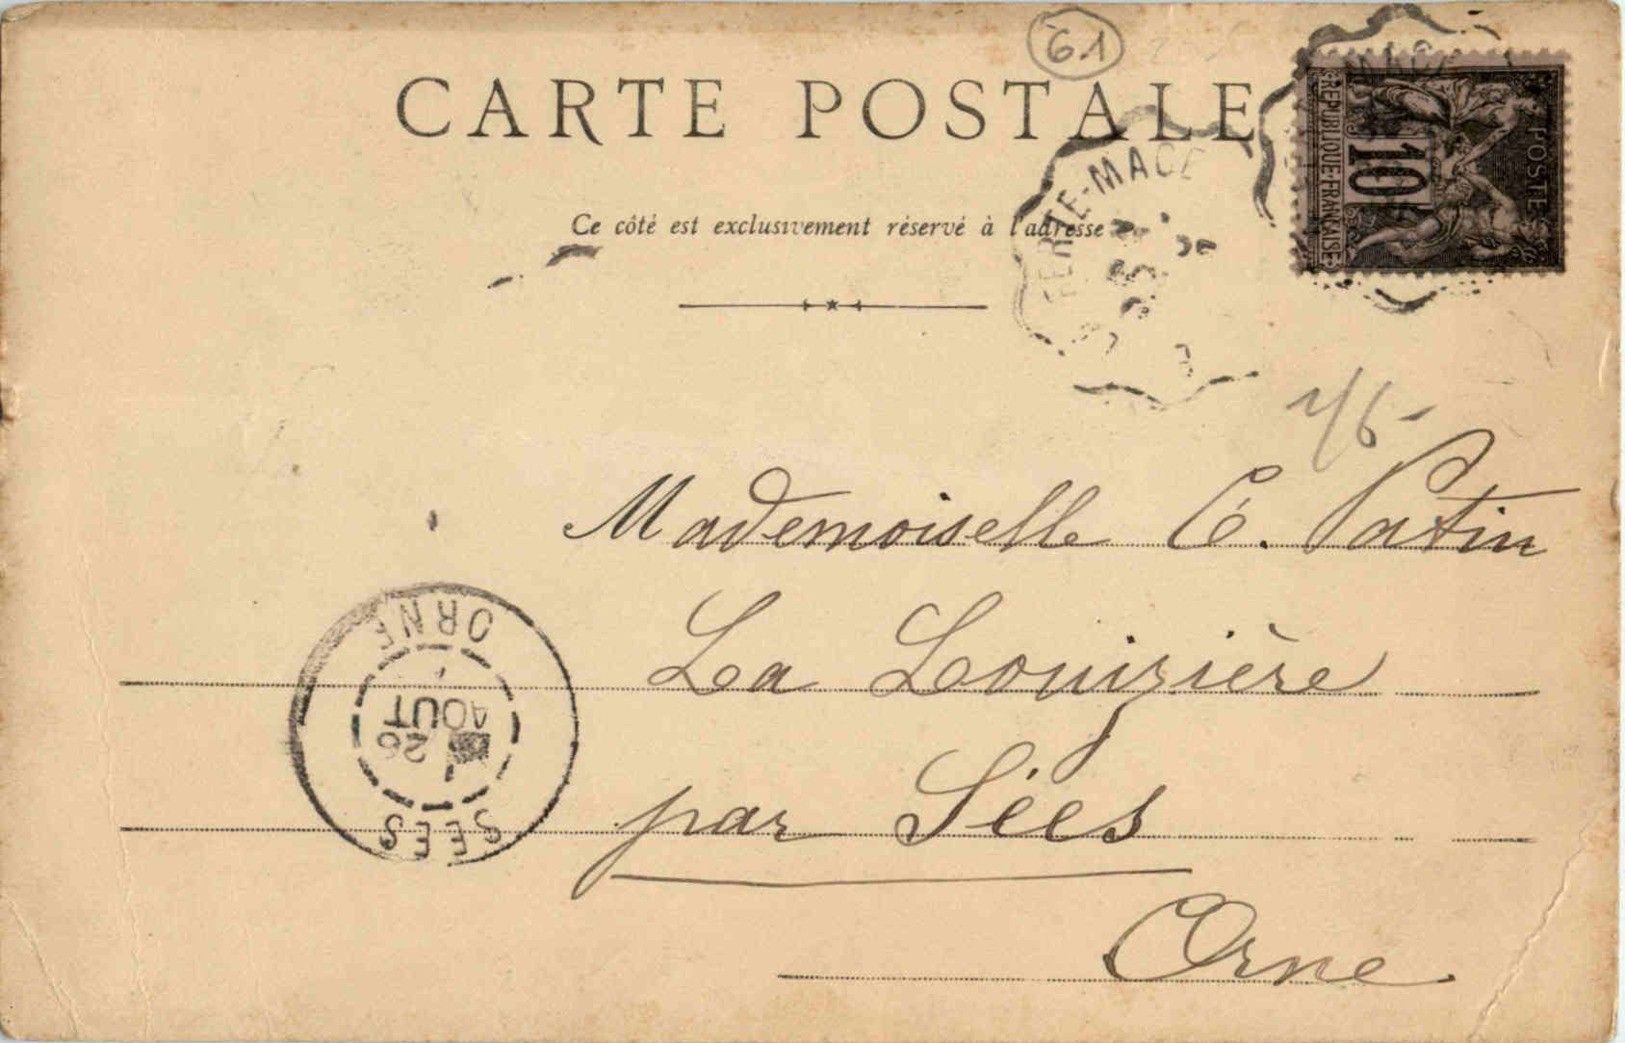 61
CARTE POSTALE
Ce côté est exclusivement réservé à l'adresse
RÉPUBLIQUE FRANÇAISE
10
POSTES
FERTE-MACE
Mademoiselle C. Patin
La Louizière
par Sées
Orne
SEES
26
AOUT
ORNE